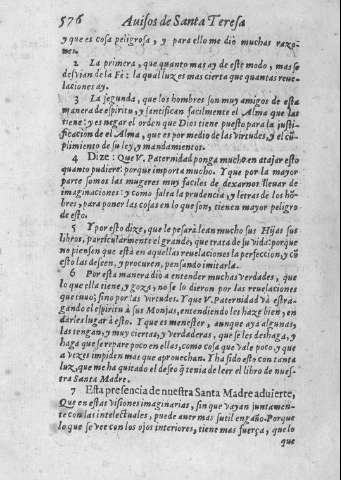 576 Auisos de Santa Teresa
y que es cosa peligrosa, y para ello me dió muchas razo-
nes.
2 La primera, que quanto mas ay de este modo, mas se
desvian de la Fè: la qual luz es mas cierta que quantas reue-
laciones ay.
3 La segunda, que los hombres son muy amigos de esta
manera de espiritu, y santifican facilmente el Alma que las
tiene: y es negar el orden que Dios tiene puesto para la justi-
ficacion de el Alma, que es por medio de las virtudes, y el cũ-
plimiento de su ley, y mandamientos.
4 Dize: Que V. Paternidad ponga mucho en atajar esto
quanto pudiere: porque importa mucho. Y que por la mayor
parte somos las mugeres muy faciles de dexarnos lleuar de
imaginaciones: y como falta la prudencia, y letras de los hõ-
bres, para poner las cosas en lo que son, tienen mayor peligro
de esto.
5 Y por esto dize, que le pesarà lean mucho sus Hijas sus
libros, particularmente el grande, que trata de su vida: porque
no piensen que està en aquellas reuelaciones la perfeccion, y cõ
esto las deseen, y procuren, pensando imitarla.
6 Por esta manera dió a entender muchas verdades, que
lo que ella tiene, y goza, no se lo dieron por las reuelaciones
que tuuo; sino por las virtudes. Y que V. Paternidad và estra-
gando el espiritu à sus Monjas, entendiendo les haze bien, en
darles lugar à esto. Y que es menester, aunque aya algunas,
las tengan, y muy ciertas, y verdaderas, que se les deshaga, y
haga que se repare poco en ellas, como cosa que vale poco, y que
a vezes impiden mas que aprouechan. Y ha sido esto con tanta
luz, que me ha quitado el deseo q̃ tenia de leer el libro de nues-
tra Santa Madre.
7 Esta presencia de nuestra Santa Madre aduierte,
Que en estas visiones imaginarias, sin que vayan juntamen-
te con las intelectuales, puede auer mas sutil engaño. Porque
lo que se vee con los ojos interiores, tiene mas fuerça, que lo
que